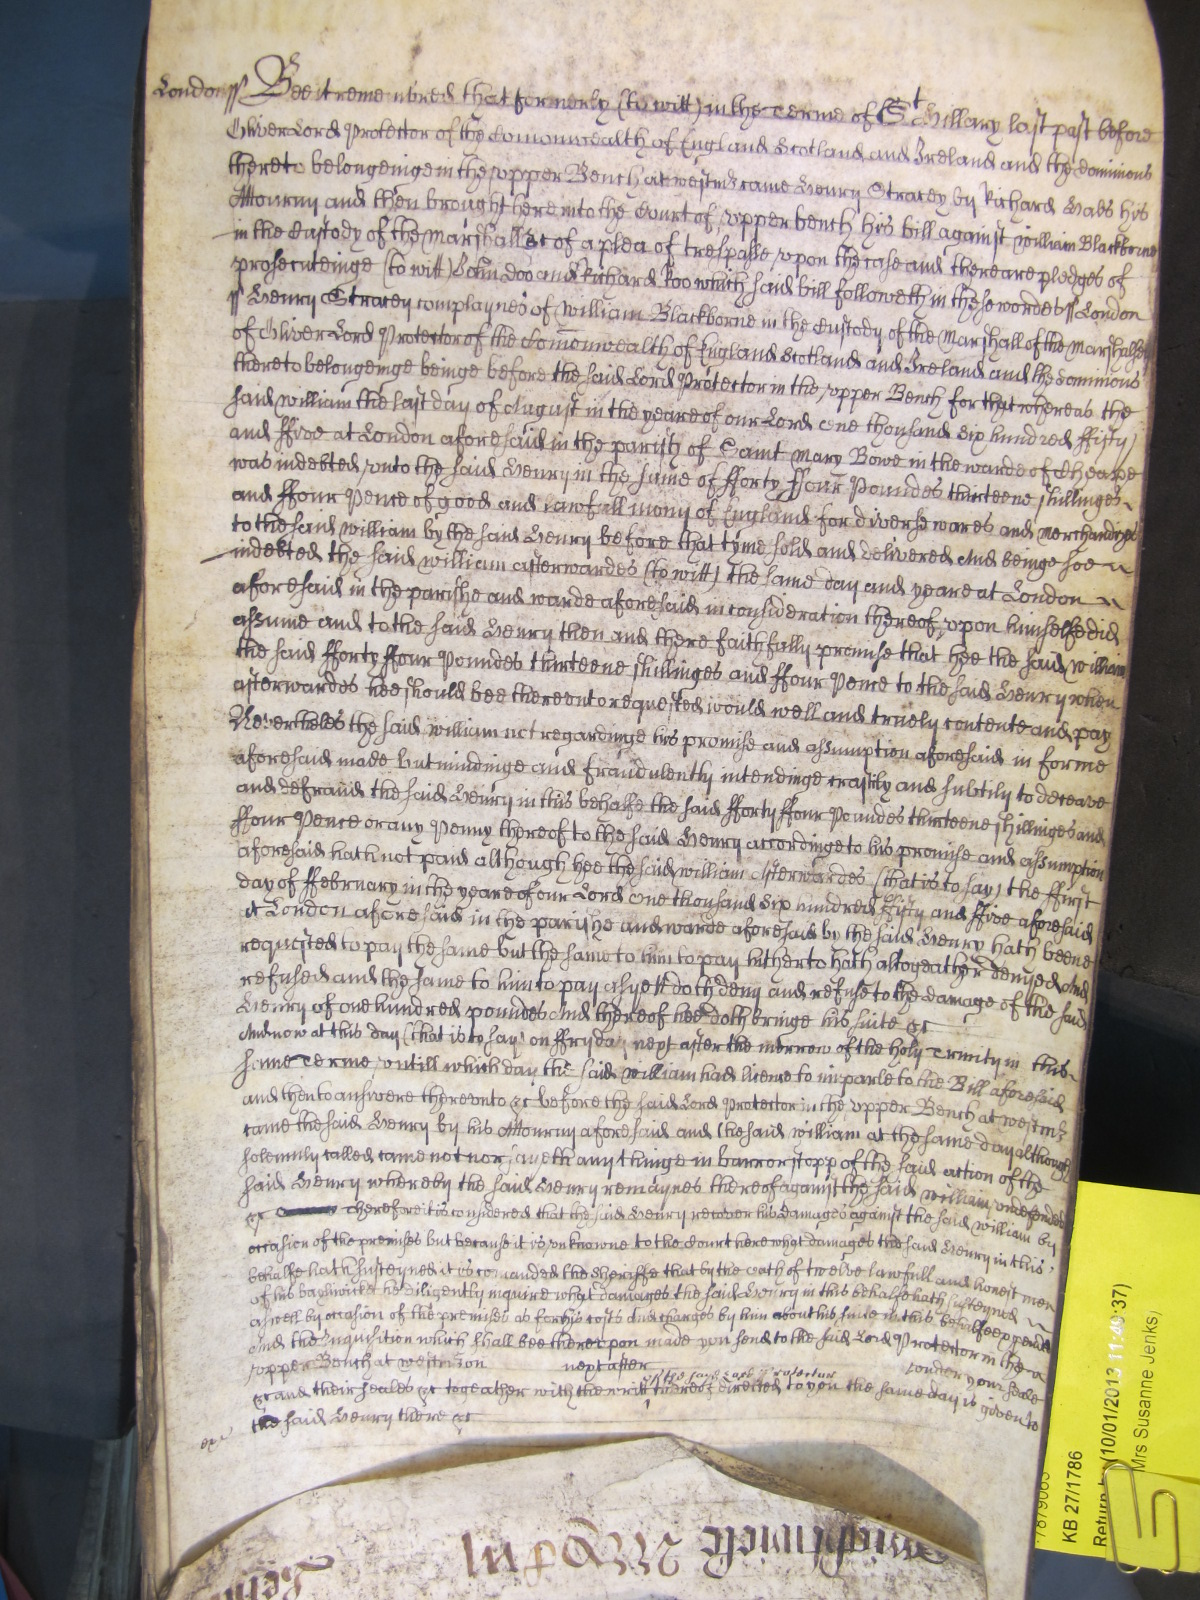 London ss Bee it remembred that formerly (to witt) in the Terme of St Hillary last past before
Oliver Lord Protector of the Comonwealth of England Scotland and Ireland and the dominions
thereto belongeinge in the upper Bench at westmr came Henry Stracey by Richard Mabs his
Attourny and then brought here into the Court of upper bench his bill against william Blackborne
in the Custody of the Marshall &c of a plea of trespasse upon the case and there are pledges of
prosecuteinge (to witt) John doo and Richard Roo which said bill followeth in these wordes ss London
ss Henry Stracey complaynes of william Blackborne in the Custody of the Marshall of the Marshalsey
of Oliver Lord Protector of the Comonwealth of England Scotland and Ireland and the dominions
thereto belongeinge beinge before the said Lord Protector in the upper Bench for that whereas the
said william the last day of August in the yeare of our Lord one thousand six hundred ffifty
and ffive at London aforesaid in the parish of Saint Mary Bowe in the warde of Cheape
was indebted unto the said Henry in the some of fforty ffour Poundes thirteene shillinges
and ffour Pence of good and lawfull mony of England for diverse wares and merchandizes
to the said william by the said Henry before that tyme sold and delivered And beinge soe
indebted the said william afterwardes (to witt) the same day and yeare at London
aforesaid in the parishe and warde aforesaid in consideration thereof upon himselfe did
assume and to the said Henry then and there faithfully promise that hee the said william
the said fforty ffour Poundes thirteene shillinges and ffour Pence to the said Henry when
afterwardes hee should bee thereunto requested would well and truely contente and pay
Neverthelesse the said william not regardinge his promise and assumption aforesaid in forme
aforesaid made but mindinge and fraudulently intendinge craftily and subtily to deceave
and defraude the said Henry in this behalfe the said fforty ffour Poundes thirteene shillinges and
ffour Pence or any Penny thereof to the said Henry accordinge to his promise and assumption
aforesaid hath not paid although hee the said william Afterwardes (that is to say) the ffirst
day of ffebruary in the yeare of our Lord one thousand six hundred ffifty and ffive aforesaid
at London aforesaid in the parishe and warde aforesaid by the said Henry hath beene
requested to pay the same but the same to him to pay hitherto hath altogeather denyed And
refused and the same to him to pay as yett doth deny and refuse to the damage of the said
Henry of one hundred poundes And thereof hee doth bringe his suite &c
And now at this day (that is to say) on ffryday next after the morrow of the holy Trinity in this
same Terme untill which day the said william had licence to imparle to the Bill aforesaid
and then to answere thereunto &c before the said Lord Protector in the upper Bench at westmr
came the said Henry by his Attourny aforesaid and the said william at the same day although
solemnly called came not nor sayeth any thinge in barr or stopp of the said action of the
said Henry whereby the said Henry remaynes thereof against the said william undefended
&c Therefore it is considered that the said Henry recover his damages against the said william by
occasion of the premises but because it is unknowne to the Court here what damages the said Henry in this
behalfe hath susteyned it is comanded the Sheriffe that by the oath of twelve lawfull and honest men
of his bayliwicke he diligently inquire what damages the said Henry in this behalfe hath susteyned
aswell by occasion of the premises as for his costs and charges by him about his suite in this behalfe expended
And the Inquisition which shall bee thereupon made you send to the said Lord Protector in the
upper Bench at westmr on next after under your seale
of the said Lord Protector
&c and their seales &c together with the writt directed to you the same day is given to
the said Henry there &c
KB 27/1786
(10/01/2013 11:49:37)
Mrs Susanne Jenks